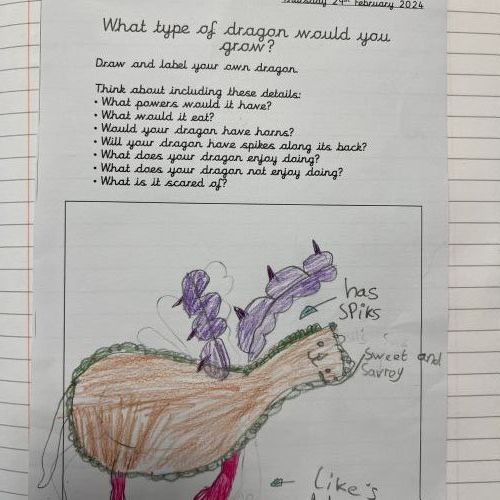 February 2024
What type of dragon would you
grow?
Draw and label your own dragon.
Think about including these details:
• What powers would it have?
• What would it eat?
• Would your dragon have horns?
• Will your dragon have spikes along its back?
• What does your dragon enjoy doing?
• What does your dragon not enjoy doing?
• What is it scared of?
has
SPiKs
Sweet and
Savrey
Like's